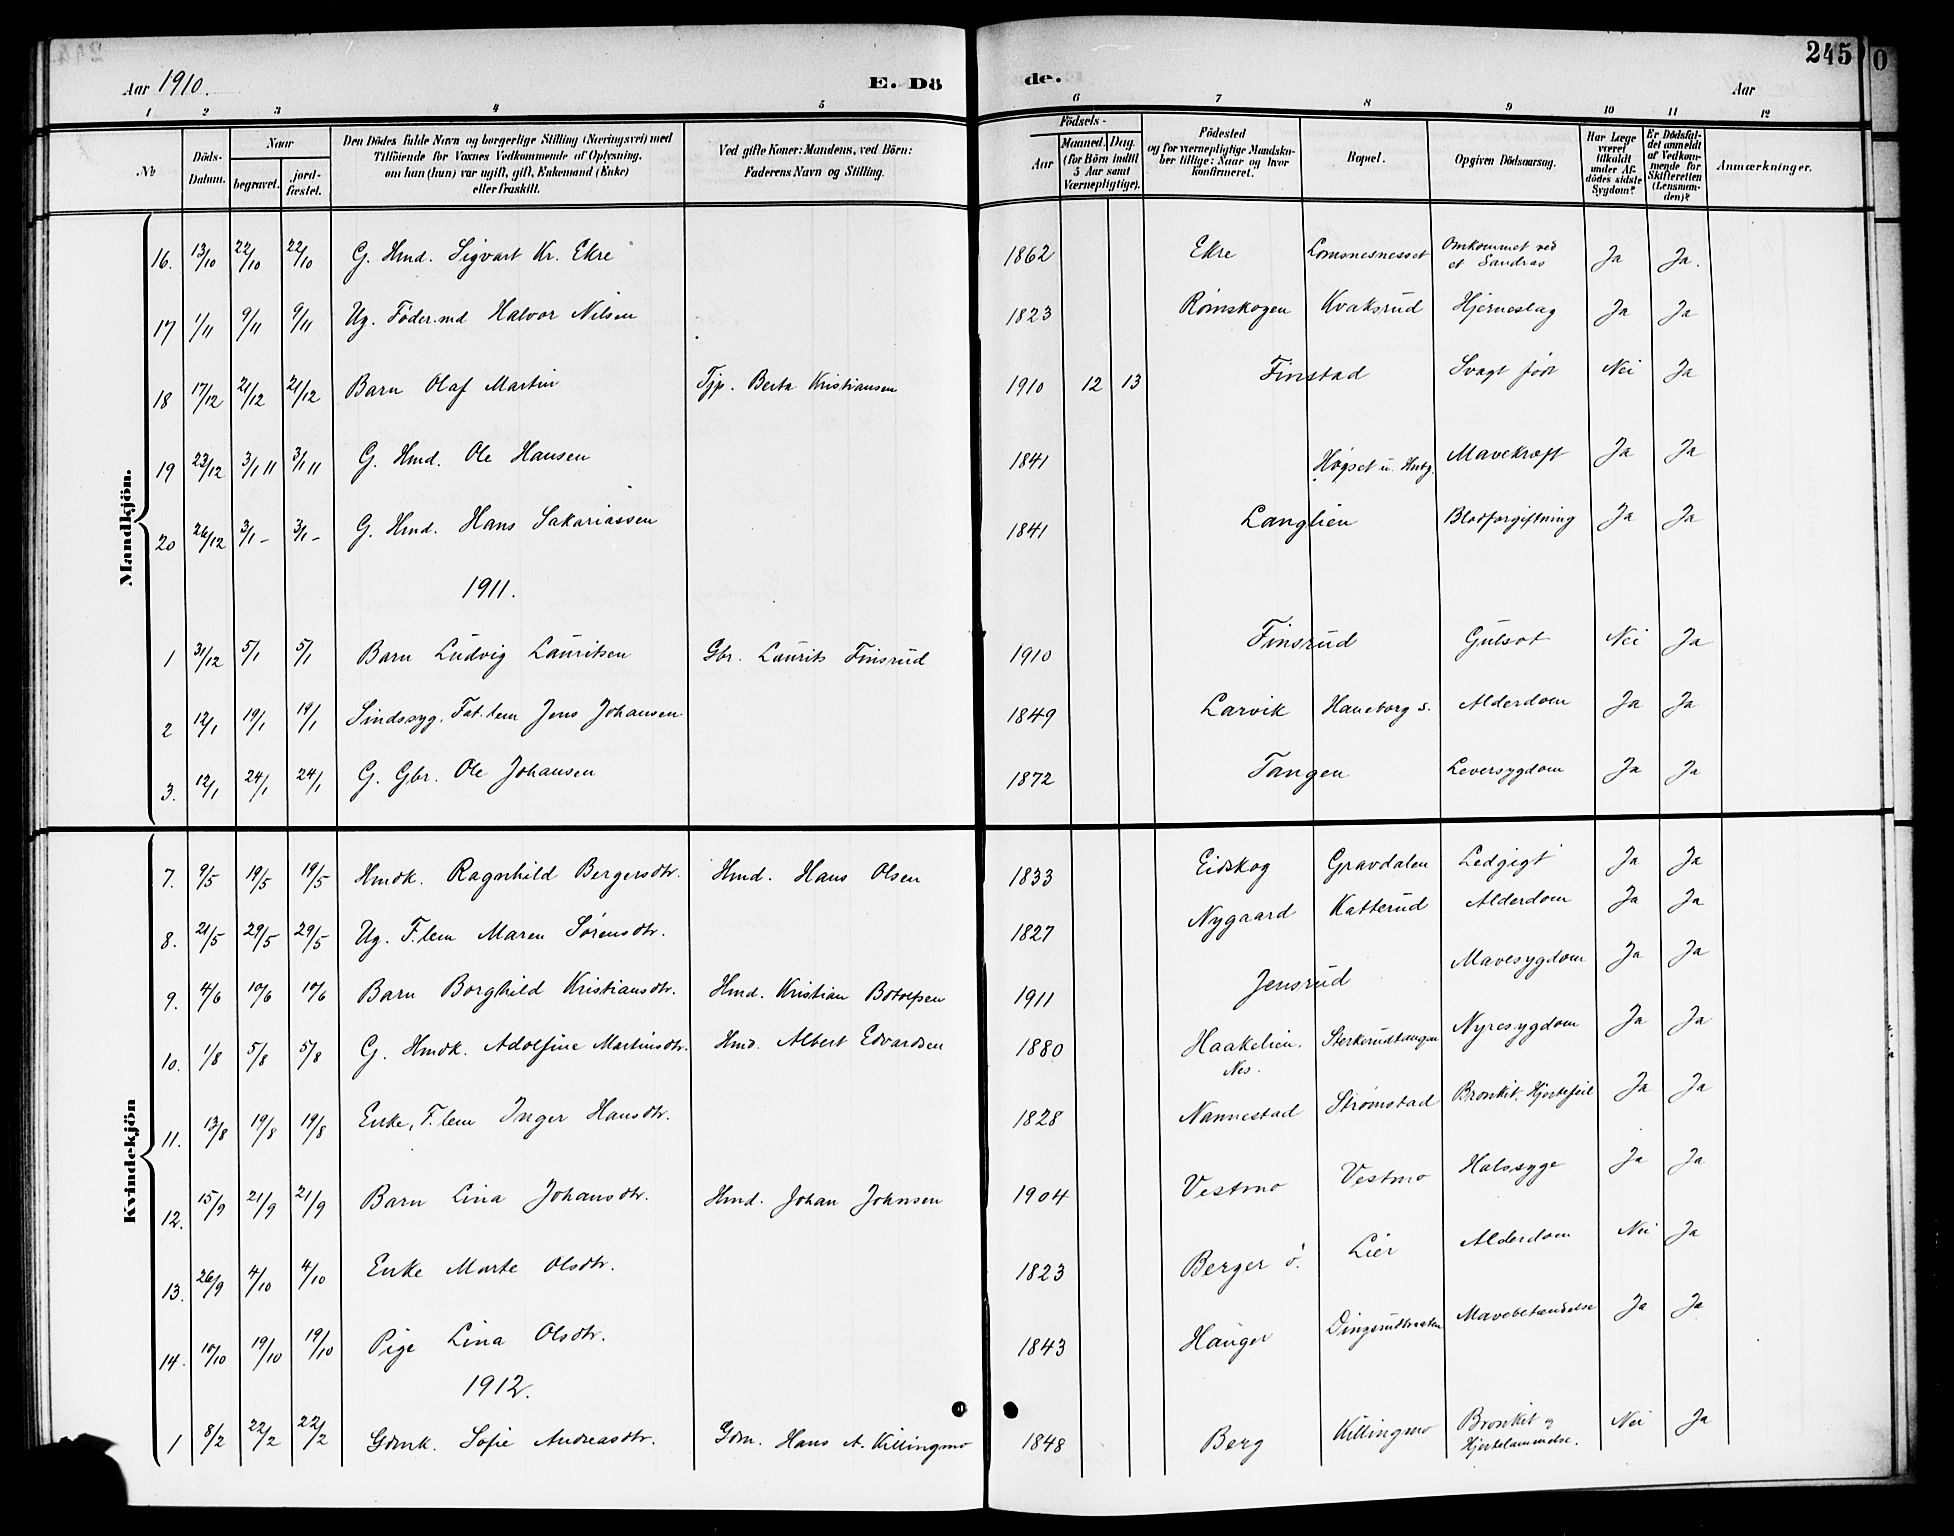 Aar 1910. E. Dö de. Aar 245
1 2 3 4 5 6 7 8 9 10 11 12
№ Döds-Datum. Naar begravet. jord-fæstet. Den Dödes fulde Navn og borgerlige Stilling (Næringsvei) med Tilföiende for Voxnes Vedkommende af Oplysning, om han (hun) var ugift, gift, Enkemand (Enke) eller fraskilt. Ved gifte Koner: Mandens, ved Börn: Faderens Navn og Stilling. Födsels- Aar Maaned. Dag. (for Börn indtil 5 Aar samt Værnepligtige). Födested og for værnepligtige Mandskaber tillige: Naar og hvor konfirmeret. Bopæl. Opgiven Dödsaarsag. Har Læge været tilkaldt under Afdödes sidste Sygdom? Er Dödsfaldet anmeldt af Vedkommende for Skifteretten (Lensmanden)? Anmærkninger.
Mandkjön.
16. 13/10 22/10 22/10 G. Hmd. Sigvart Kr. Ekre 1862 Ekre Lomsnesnesset Omkommet ved et Sandras Ja Ja.
17 1/11 9/11 9/11 Ug. Föder.md Halvor Nilsen 1823 Rømskogen Kvaksrud Hjerneslag Ja Ja
18 17/12 21/12 21/12 Barn Olaf Martin Tjp. Berta Kristiansen 1910 12 13 Finstad Svagt født Nei Ja
19 23/12 3/1 11 3/1 11 G. Hmd. Ole Hansen 1841 Høgset u. Hntg. Mavekræft Ja Ja
20 26/12 3/1 - 3/1 - G. Hmd. Hans Sakariassen 1841 Langlien Blodforgiftning Ja Ja
1911.
1 31/12 5/1 5/1 Barn Ludvig Lauritsen Gbr. Laurits Finsrud 1910 Finsrud Gulsot Nei Ja
2 12/1 19/1 19/1 Sindssyg. Fat.lem Jens Johansen 1849 Larvik Haneborg s. Alderdom Ja Ja
3. 12/1 24/1 24/1 G. Gbr. Ole Johansen 1872 Tangen Leversygdom Ja Ja
Kvindekjön
7. 9/5 19/5 19/5 Hmdk. Ragnhild Bergersdtr. Hmd. Hans Olsen 1833 Eidskog Gravdalen Ledgigt Ja Ja
8. 21/5 29/5 29/5 Ug. F.lem Maren Sørensdtr. 1827 Nygaard Katterud Alderdom Ja Ja
9. 4/6 10/6 10/6 Barn Borghild Kristiansdtr. Hmd. Kristian Botolfsen 1911 Jensrud Mavesygdom Ja Ja
10. 1/8 5/8 5/8 G. Hmdk. Adolfine Martinsdtr. Hmd. Albert Edvardsen 1880 Haakelien, Nes. Sterkerudtangen Nyresygdom Ja Ja
11. 13/8 19/8 19/8 Enke, F.lem Inger Hansdtr. 1828 Nannestad Strømstad Bronkit. Hjertefeil Ja Ja
12. 15/9 21/9 21/9 Barn Lina Johansdtr. Hmd. Johan Johnsen 1904 Vestmo Vestmo Halssyge Ja Ja
13. 26/9 4/10 4/10 Enke Marte Olsdtr. 1823 Berger ö. Lier Alderdom Nei Ja
14. 10/10 19/10 19/10 Pige Lina Olsdtr. 1843 Hauger Dingsrudbraaten Mavebetændelse Ja Ja
1912.
1 8/2 22/2 22/2 Gdmk. Sofie Andreasdtr. Gdm. Hans A. Killingmo 1848 Berg Killingmo Bronkit og Hjertelammelse. Nei Ja